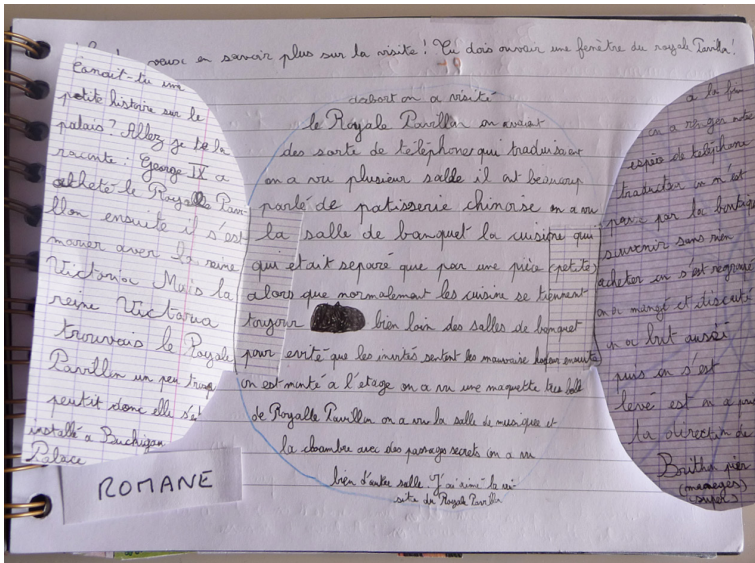 veux en savoir plus sur la visite! Tu dois ouvrir une fenêtre du royale Pavillin!
Connait-tu une
petite histoire sur le
palais? Allez je te la
raconte: George IX a
acheté le Royalle Pavi-
llon ensuite il s'est
marier avec la reine
Victoria Mais la
reine Victoria
trouvais le Royale
Pavillin un peu trop
peutit donc elle s'est
installé a Buchigan
Palace
ROMANE
dabort on a visité
le Royale Pavillin on avait
des sorte de téléphones qui traduisaient
on a vu plusieur salle il ont beaucoup
parlé de patisserie chinoise on a vu
la salle de banquet la cuisine qui
qui était separé que par une pièce (petite)
alors que normalement les cuisine se tiennent
toujour bien loin des salles de banquet
pour evité que les invités sentent les mauvaise ensuite
on est monté à l'étage on a vu une maquette très belle
de Royalle Pavillin on a vu la salle de musique et
la chambre avec des passages secrets on a vu
bien d'autre salle. J'ai aimé la vi-
site du Royale Pavillin
a la fin
on a ranger notre
espèce de téléphone
traducteur on n'est
passé par la boutique
souvenir sans rien
acheter on s'est regroupé
on a mangé et discuté
on a but aussi
puis on s'est
levé est on a pris
la direction de
Brithon pier
(maneges
super)